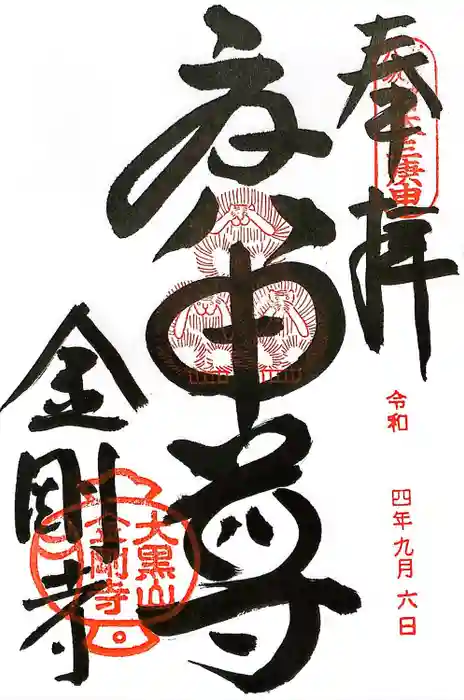 奉拝
庚申尊
金剛寺
大黒山
金剛寺
令和 四年九月六日